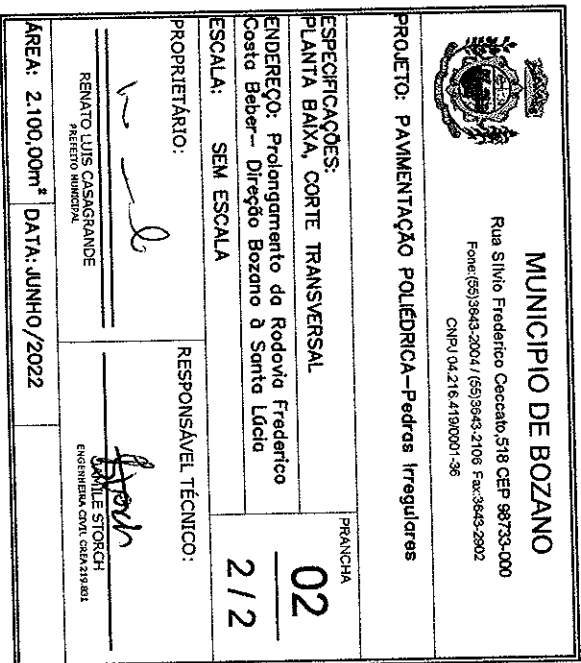 MUNICIPIO DE BOZANO
Rua Silvio Frederico Ceccato,518 CEP 98733-000
Fone:(55)3643-2004 / (55)3643-2106 Fax:3643-2902
CNPJ 04.216.419/0001-36
PROJETO: PAVIMENTAÇÃO POLIÉDRICA-Pedras Irregulares
ESPECIFICAÇÕES:
PLANTA BAIXA, CORTE TRANSVERSAL
PRANCHA
02
2/2
ENDEREÇO: Prolongamento da Rodovia Frederico
Costa Beber- Direção Bozano à Santa Lúcia
ESCALA: SEM ESCALA
PROPRIETÁRIO:
RENATO LUIS CASAGRANDE
PREFEITO MUNICIPAL
RESPONSÁVEL TÉCNICO:
Storch
CAMILE STORCH
ENGENHEIRA CIVIL CREA 219.831
ÁREA: 2.100,00m²
DATA: JUNHO/2022